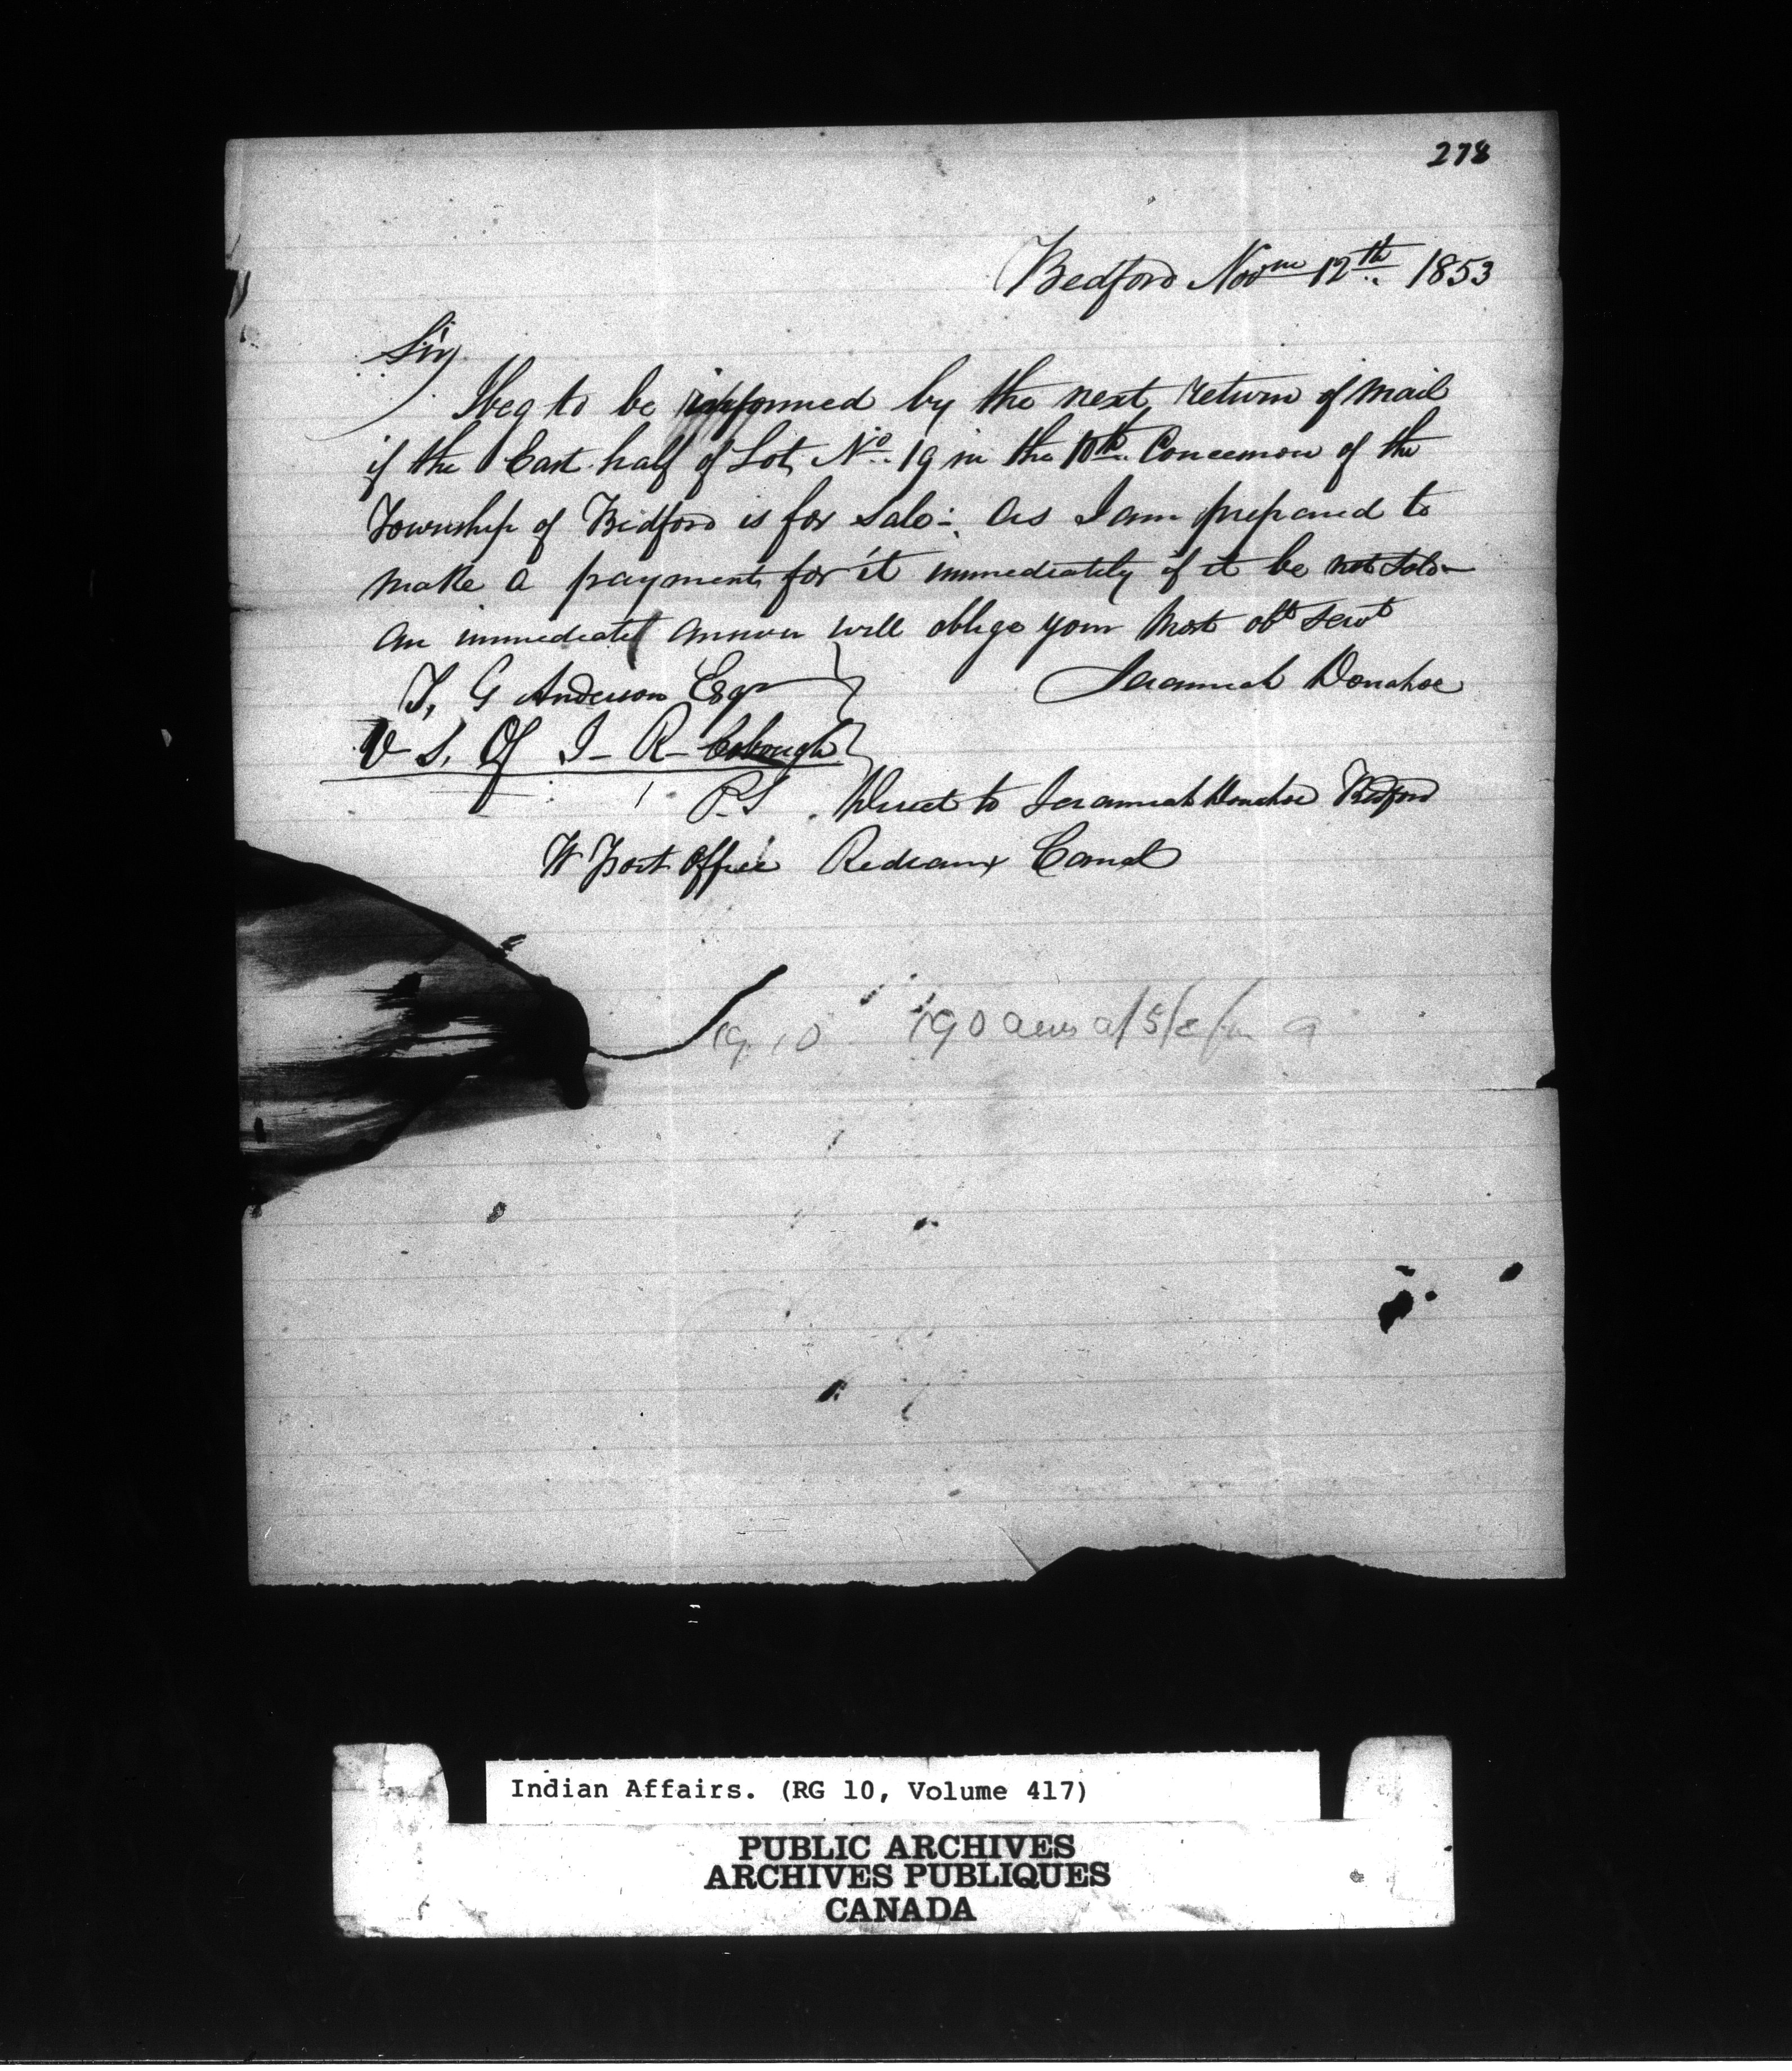 278
Bedford Novm 12th 1853
Sir
I beg to be informed by the next return of mail
if the East half of Lot No. 19 in the 10th Concession of the
Township of Bedford is for Sale: As I am prepared to
make a payment for it immediately if it be not Sold
an immediate answer will oblige your Most obt Servt
T, G Anderson Esqr
Jeramiah Donahoe
V S. Of I - R - Cobourgh
P.S. Direct to Jeramiah Donahoe Bedford
W Port Office Redeaux Canal
19, 10 190 acres a/ 5/
Indian Affairs. (RG 10, Volume 417)
PUBLIC ARCHIVES
ARCHIVES PUBLIQUES
CANADA